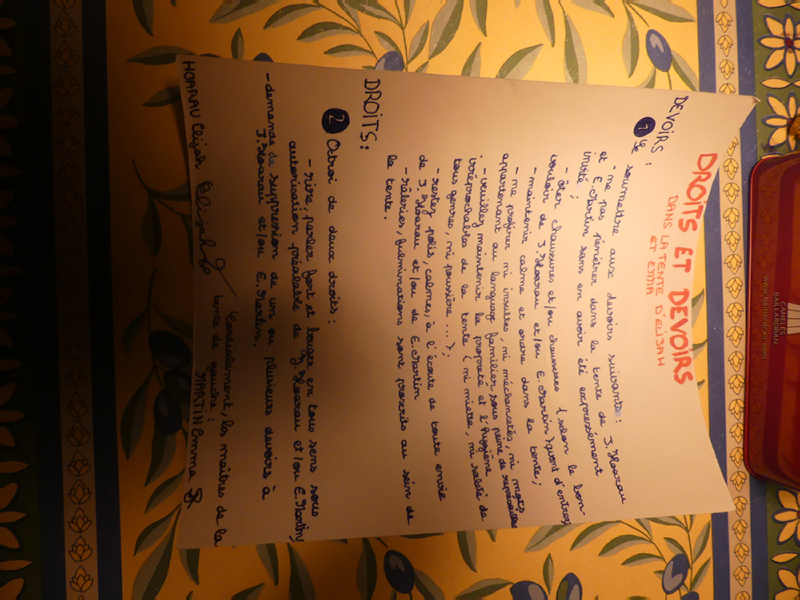 DROITS ET DEVOIRS
DANS LA TENTE D'ELIJAH
ET EMMA
DEVOIRS :
1 Se soumettre aux devoirs suivants :
- ne pas pénétrer dans la tente de J. Hoarau
et E. Martin sans en avoir été expressément
invité ;
- ôter chaussures et/ou chaussures (selon le bon-
vouloir de J. Hoarau et/ou E. Martin) avant d'entrer,
- maintenir calme et ordre dans la tente ;
- ne proférer ni insultes, ni méchancetés, ni mots
appartenant au language familier sous peine de représailles
- veillez maintenir la propreté et l'hygiène
irréprochables de la tente (ni miette, ni saleté de
tous genres, ni poussière ...) ;
- restez polis, calmes, à l'écoute de toute envie
de J. Hoarau et/ou de E. Martin
- râleries, fulminations sont proscrits au sein de
la tente.
DROITS :
2 Octroi de deux droits :
- rire, parler fort et bouger en tous sens sous
autorisation préalable de J. Hoarau et/ou E. Martin,
- demande de suppression de un ou plusieurs devoirs à
J. Hoarau et/ou E. Martin.
Cordialement, les maîtres de la
tente de gauche :
HOARAU Elijah Elijah MARTIN Emma
CANELÉS
BAILLARDRAN
www.baillardran.com